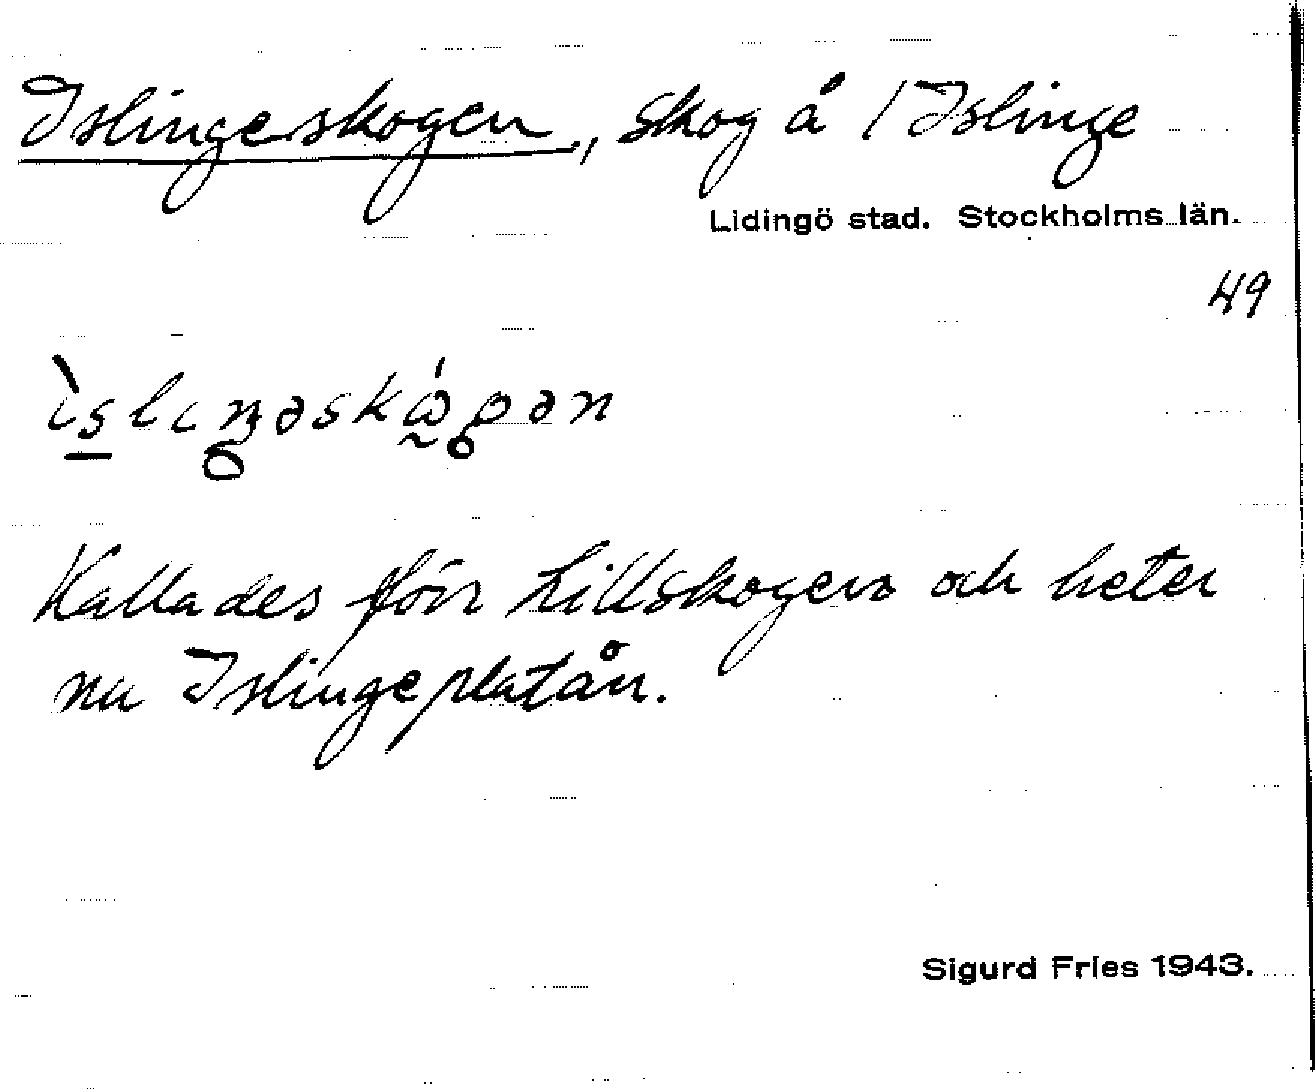 Islingeskogen, skog å / Islinge
Lidingö stad. Stockholms län.
49
Kallades förr Lillskogen och heter
nu Islingeplatån.
Sigurd Fries 1943.